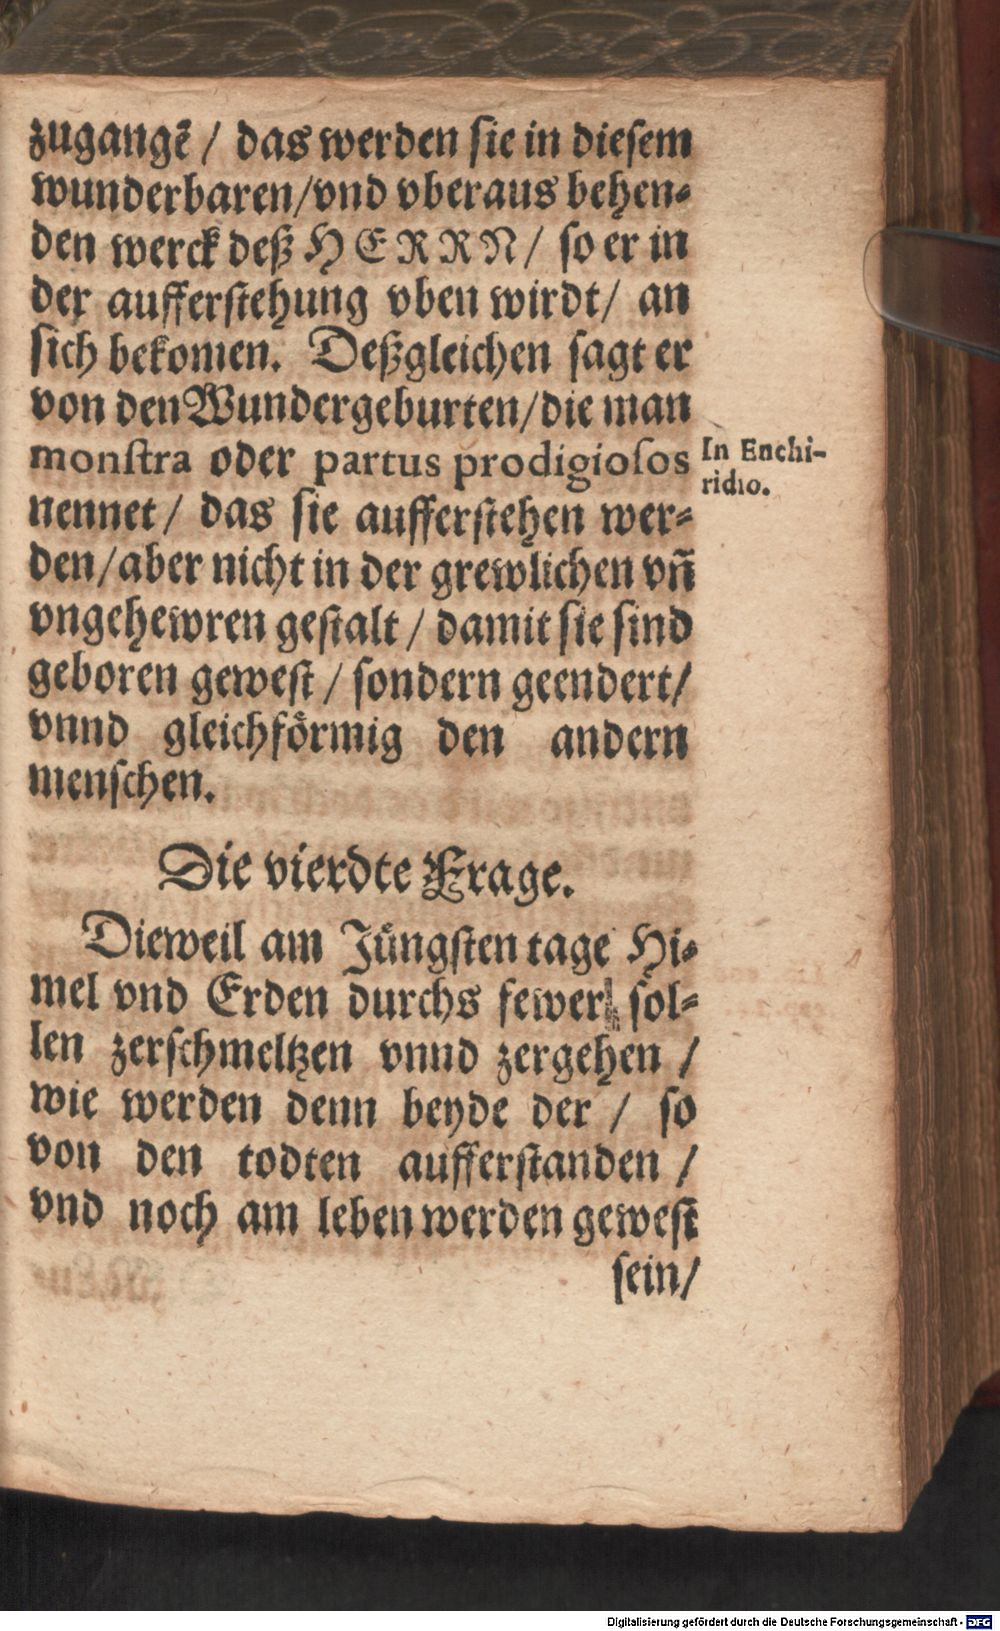 zugangē / das werden sie in diesem
wunderbaren/vnd vberaus behen-
den werck deß HERRN / so er in
der aufferstehung vben wirdt / an
sich bekomen. Deßgleichen sagt er
von den Wundergeburten / die man
monstra oder partus prodigiosos
In Enchi-
ridio.
nennet / das sie aufferstehen wer-
den / aber nicht in der grewlichen vñ
vngehewren gestalt / damit sie sind
geboren gewest / sondern geendert /
vnnd gleichförmig den andern
menschen.
Die vierdte Frage.
Dieweil am Jüngsten tage Hi-
mel vnd Erden durchs fewer sol-
len zerschmeltzen vnnd zergehen /
wie werden denn beyde der / so
von den todten aufferstanden /
vnd noch am leben werden gewest
sein /
Digitalisierung gefördert durch die Deutsche Forschungsgemeinschaft - DFG